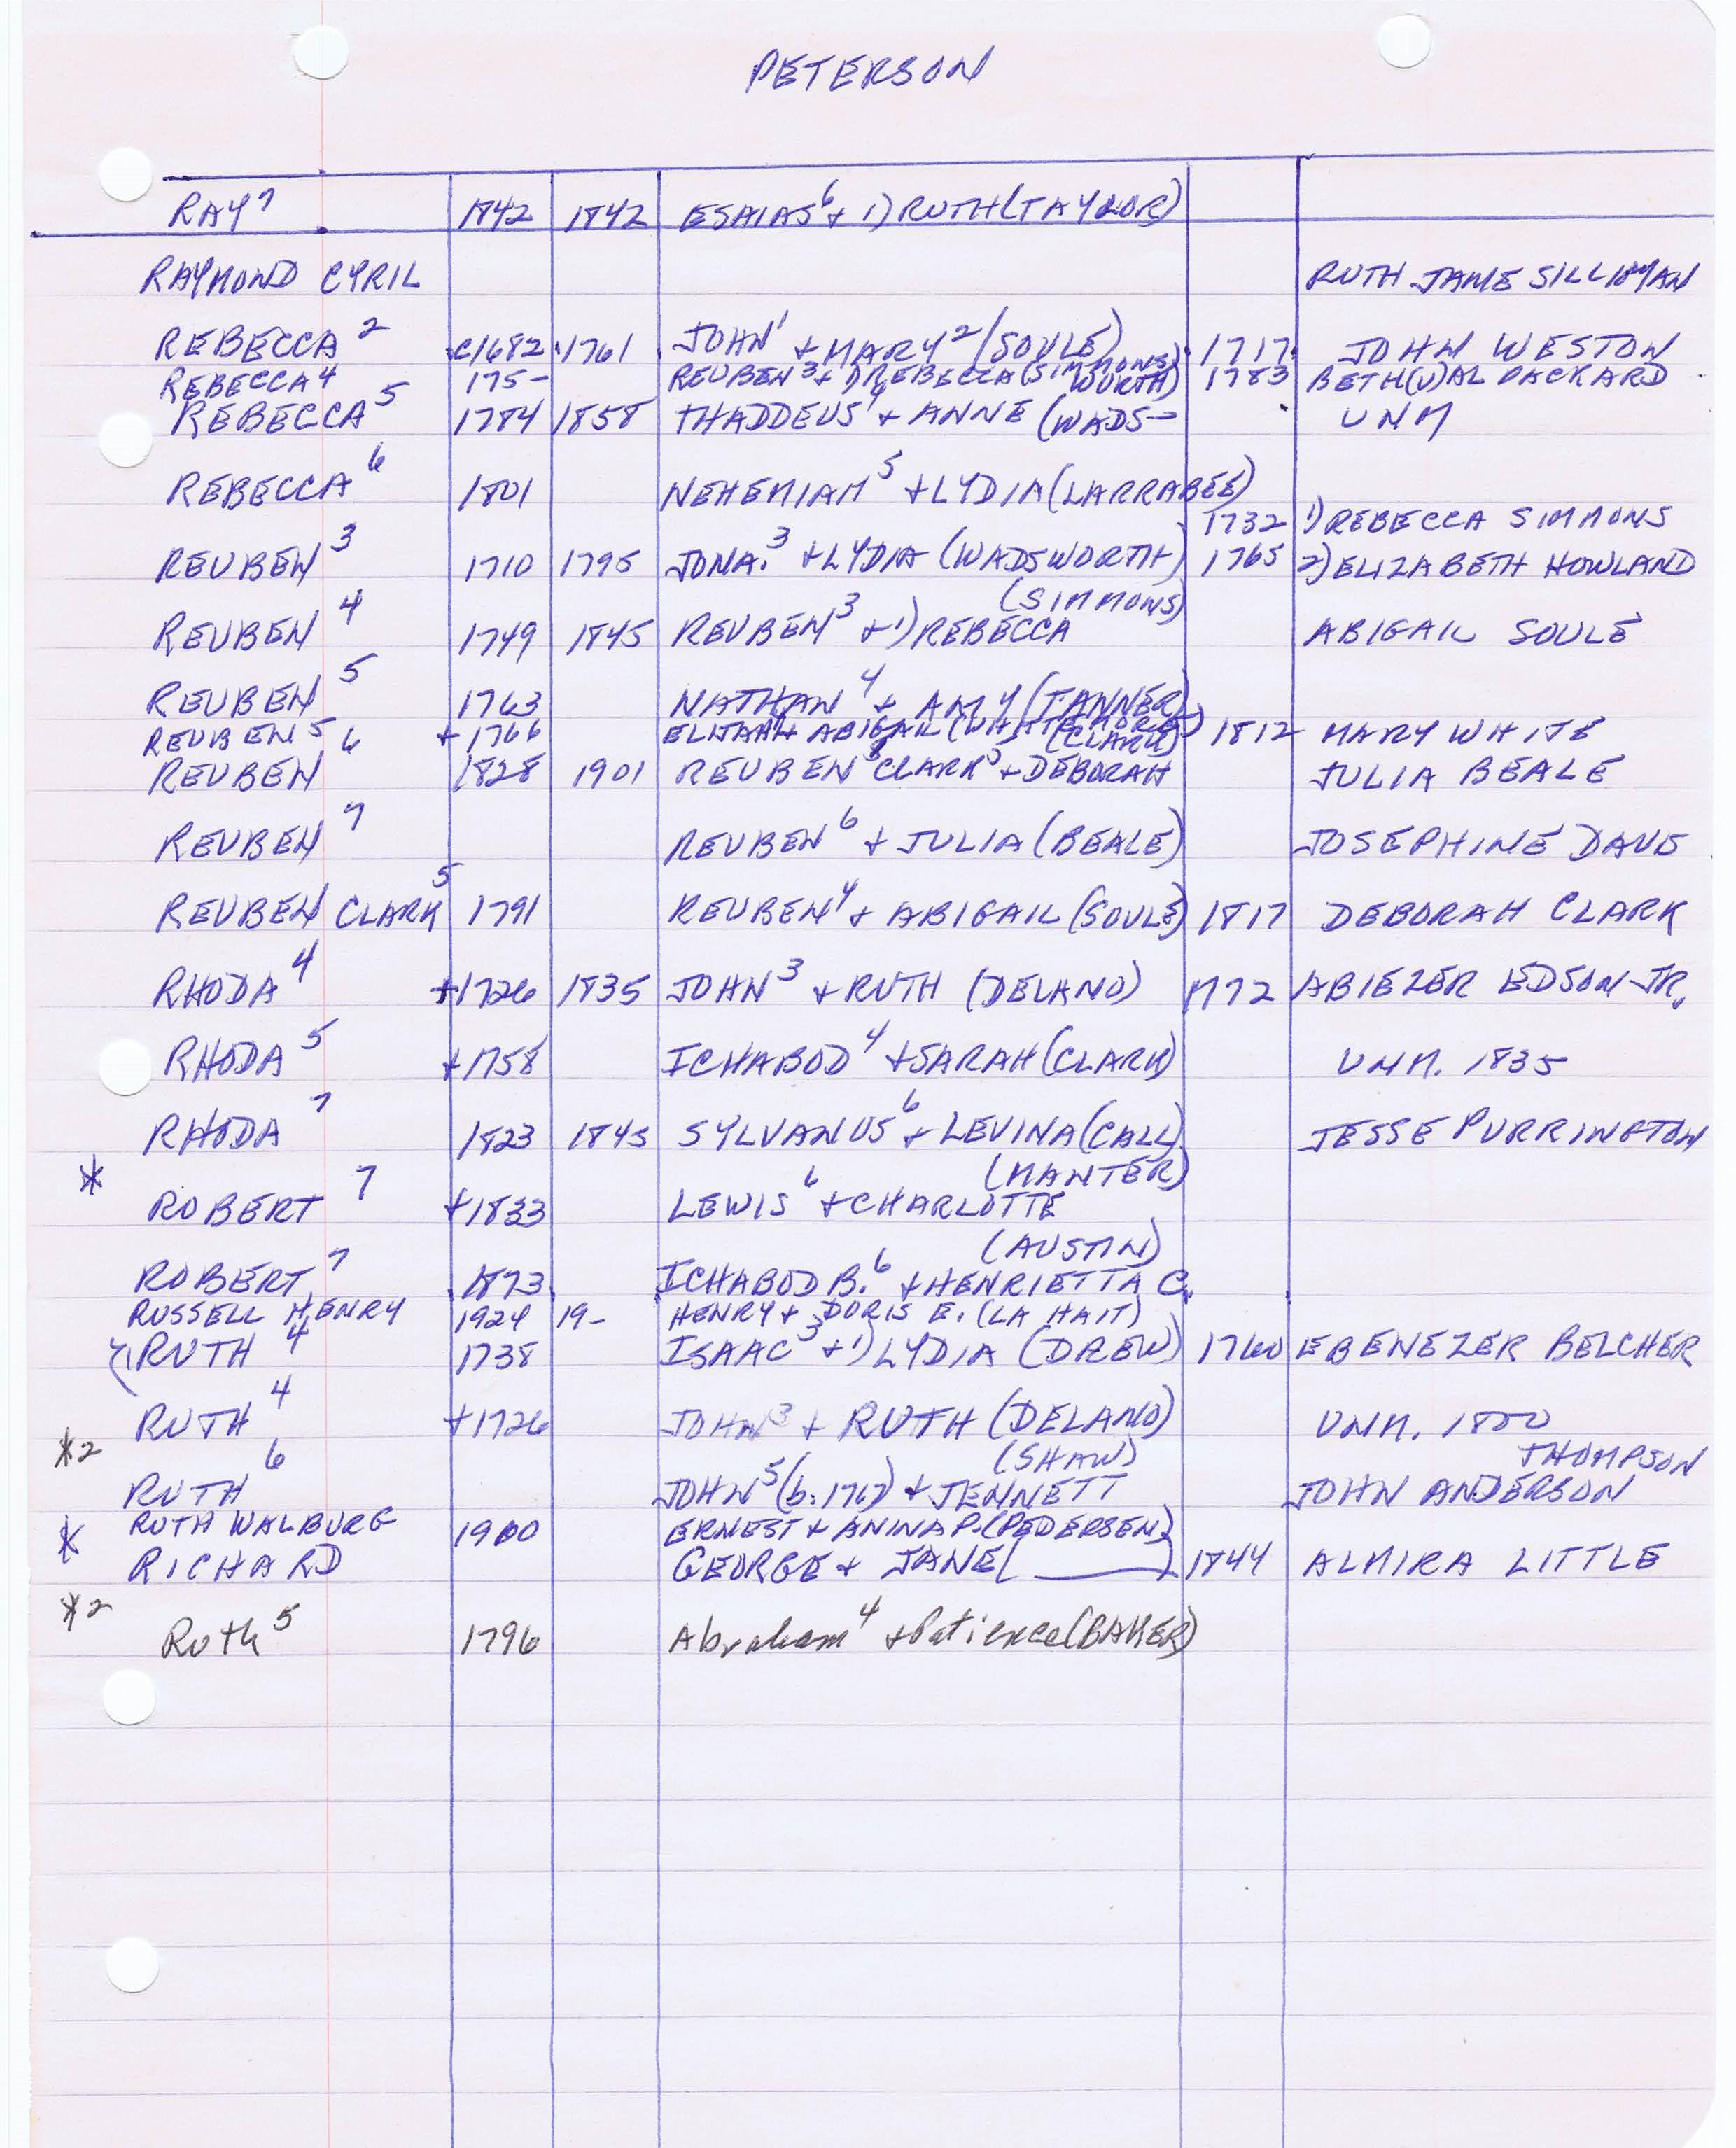 PETERSON
RAY⁷ 1842 1842 ESAIAS⁶ + 1) RUTH (TAYLOR)
RAYMOND CYRIL RUTH JANE SILLIMAN
REBECCA² c1682 1761 JOHN¹ + MARY² (SOULE) 1717 JOHN WESTON
REBECCA⁴ 175- REUBEN³ + 1) REBECCA (SIMMONS) 1783 BETH(U)AL PACKARD
WORTH)
REBECCA⁵ 1784 1858 THADDEUS⁴ + ANNE (WADS- UNM
REBECCA⁶ 1801 NEHEMIAH⁵ + LYDIA (LARRABEE)
1732 1) REBECCA SIMMONS
REUBEN³ 1710 1795 JONA.³ + LYDIA (WADSWORTH) 1765 2) ELIZABETH HOWLAND
(SIMMONS)
REUBEN⁴ 1749 1845 REUBEN³ + 1) REBECCA ABIGAIL SOULE
REUBEN⁵ 1763 NATHAN⁴ + AMY (TANNER)
REUBEN⁵ +1766 ELIJAH⁴ ABIGAIL (WHITTEMORE) 1812 MARY WHITE
(CLARK)
REUBEN⁶ 1828 1901 REUBEN CLARK⁵ + DEBORAH JULIA BEALE
REUBEN⁷ REUBEN⁶ + JULIA (BEALE) JOSEPHINE DAVE
REUBEN CLARK⁵ 1791 REUBEN⁴ + ABIGAIL (SOULE) 1817 DEBORAH CLARK
RHODA⁴ +1726 1835 JOHN³ + RUTH (DELANO) 1772 ABIEZER EDSON JR.
RHODA⁵ +1758 ICHABOD⁴ + SARAH (CLARK) UNM. 1835
RHODA⁷ 1823 1845 SYLVANUS⁶ + LEVINA (CALL) JESSE PURRINGTON
* (MANTER)
ROBERT⁷ +1833 LEWIS⁶ + CHARLOTTE
(AUSTIN)
ROBERT⁷ 1873 ICHABOD B.⁶ + HENRIETTA C.
RUSSELL HENRY 1924 19- HENRY + DORIS E. (LA HAIT)
RUTH⁴ 1738 ISAAC³ + 1) LYDIA (DREW) 1760 EBENEZER BELCHER
RUTH⁴ +1726 JOHN³ + RUTH (DELANO) UNM. 1800
*2 (SHAW) THOMPSON
RUTH⁶ JOHN⁵ (b. 1767) + JENNETT JOHN ANDERSON
RUTH WALBURG 1900 ERNEST + ANINA P. (PEDERSEN)
* RICHARD GEORGE + JANE ( ) 1844 ALMIRA LITTLE
*2
Ruth⁵ 1796 Abraham⁴ + Patience (BAKER)